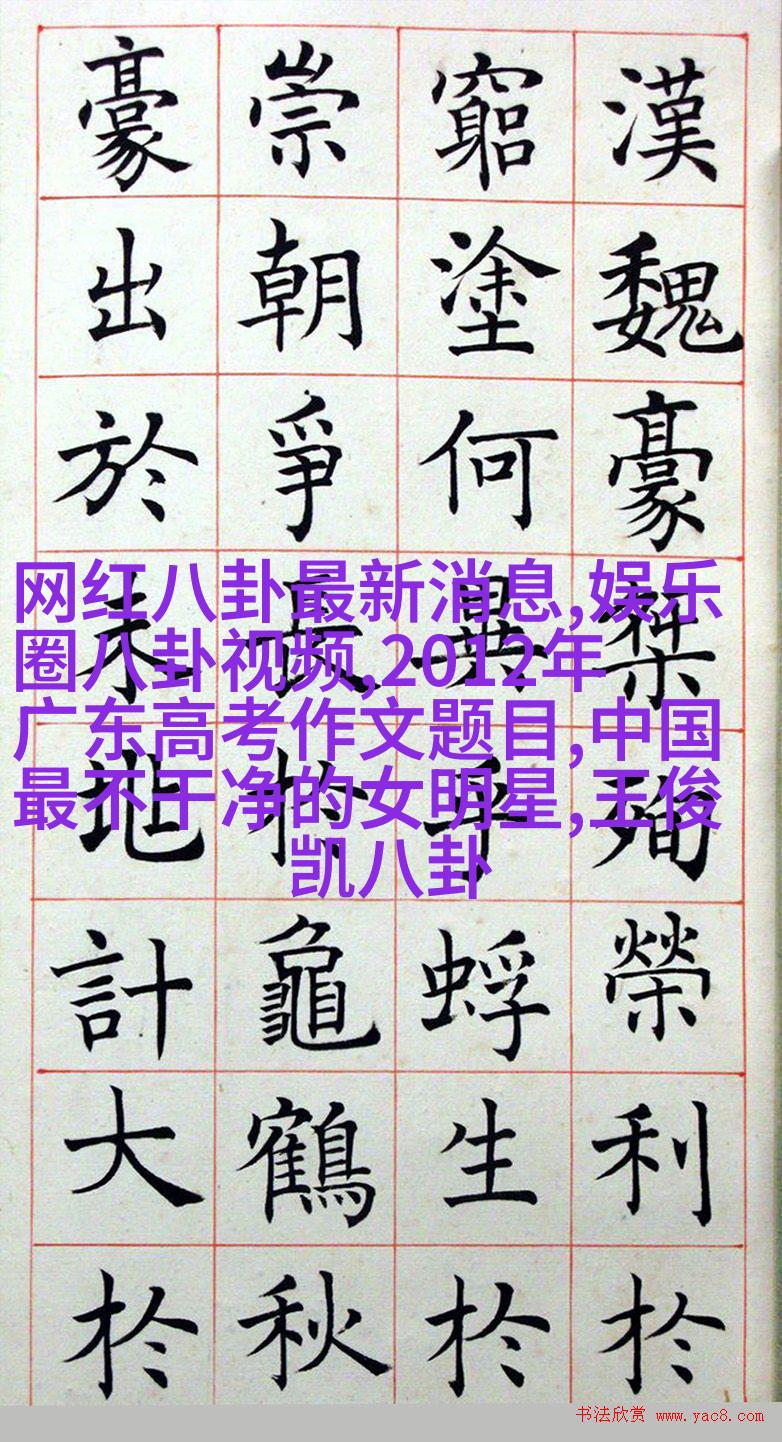 漢魏豪殉榮利於
窮塗何異乎蜉生於
崇朝爭長於龜鶴秋
豪出於未計大於
网红八卦最新消息,娱乐
圈八卦视频,2012年
广东高考作文题目,中国
最不干净的女明星,王俊
凯八卦
书法欣赏 www.yac8.com